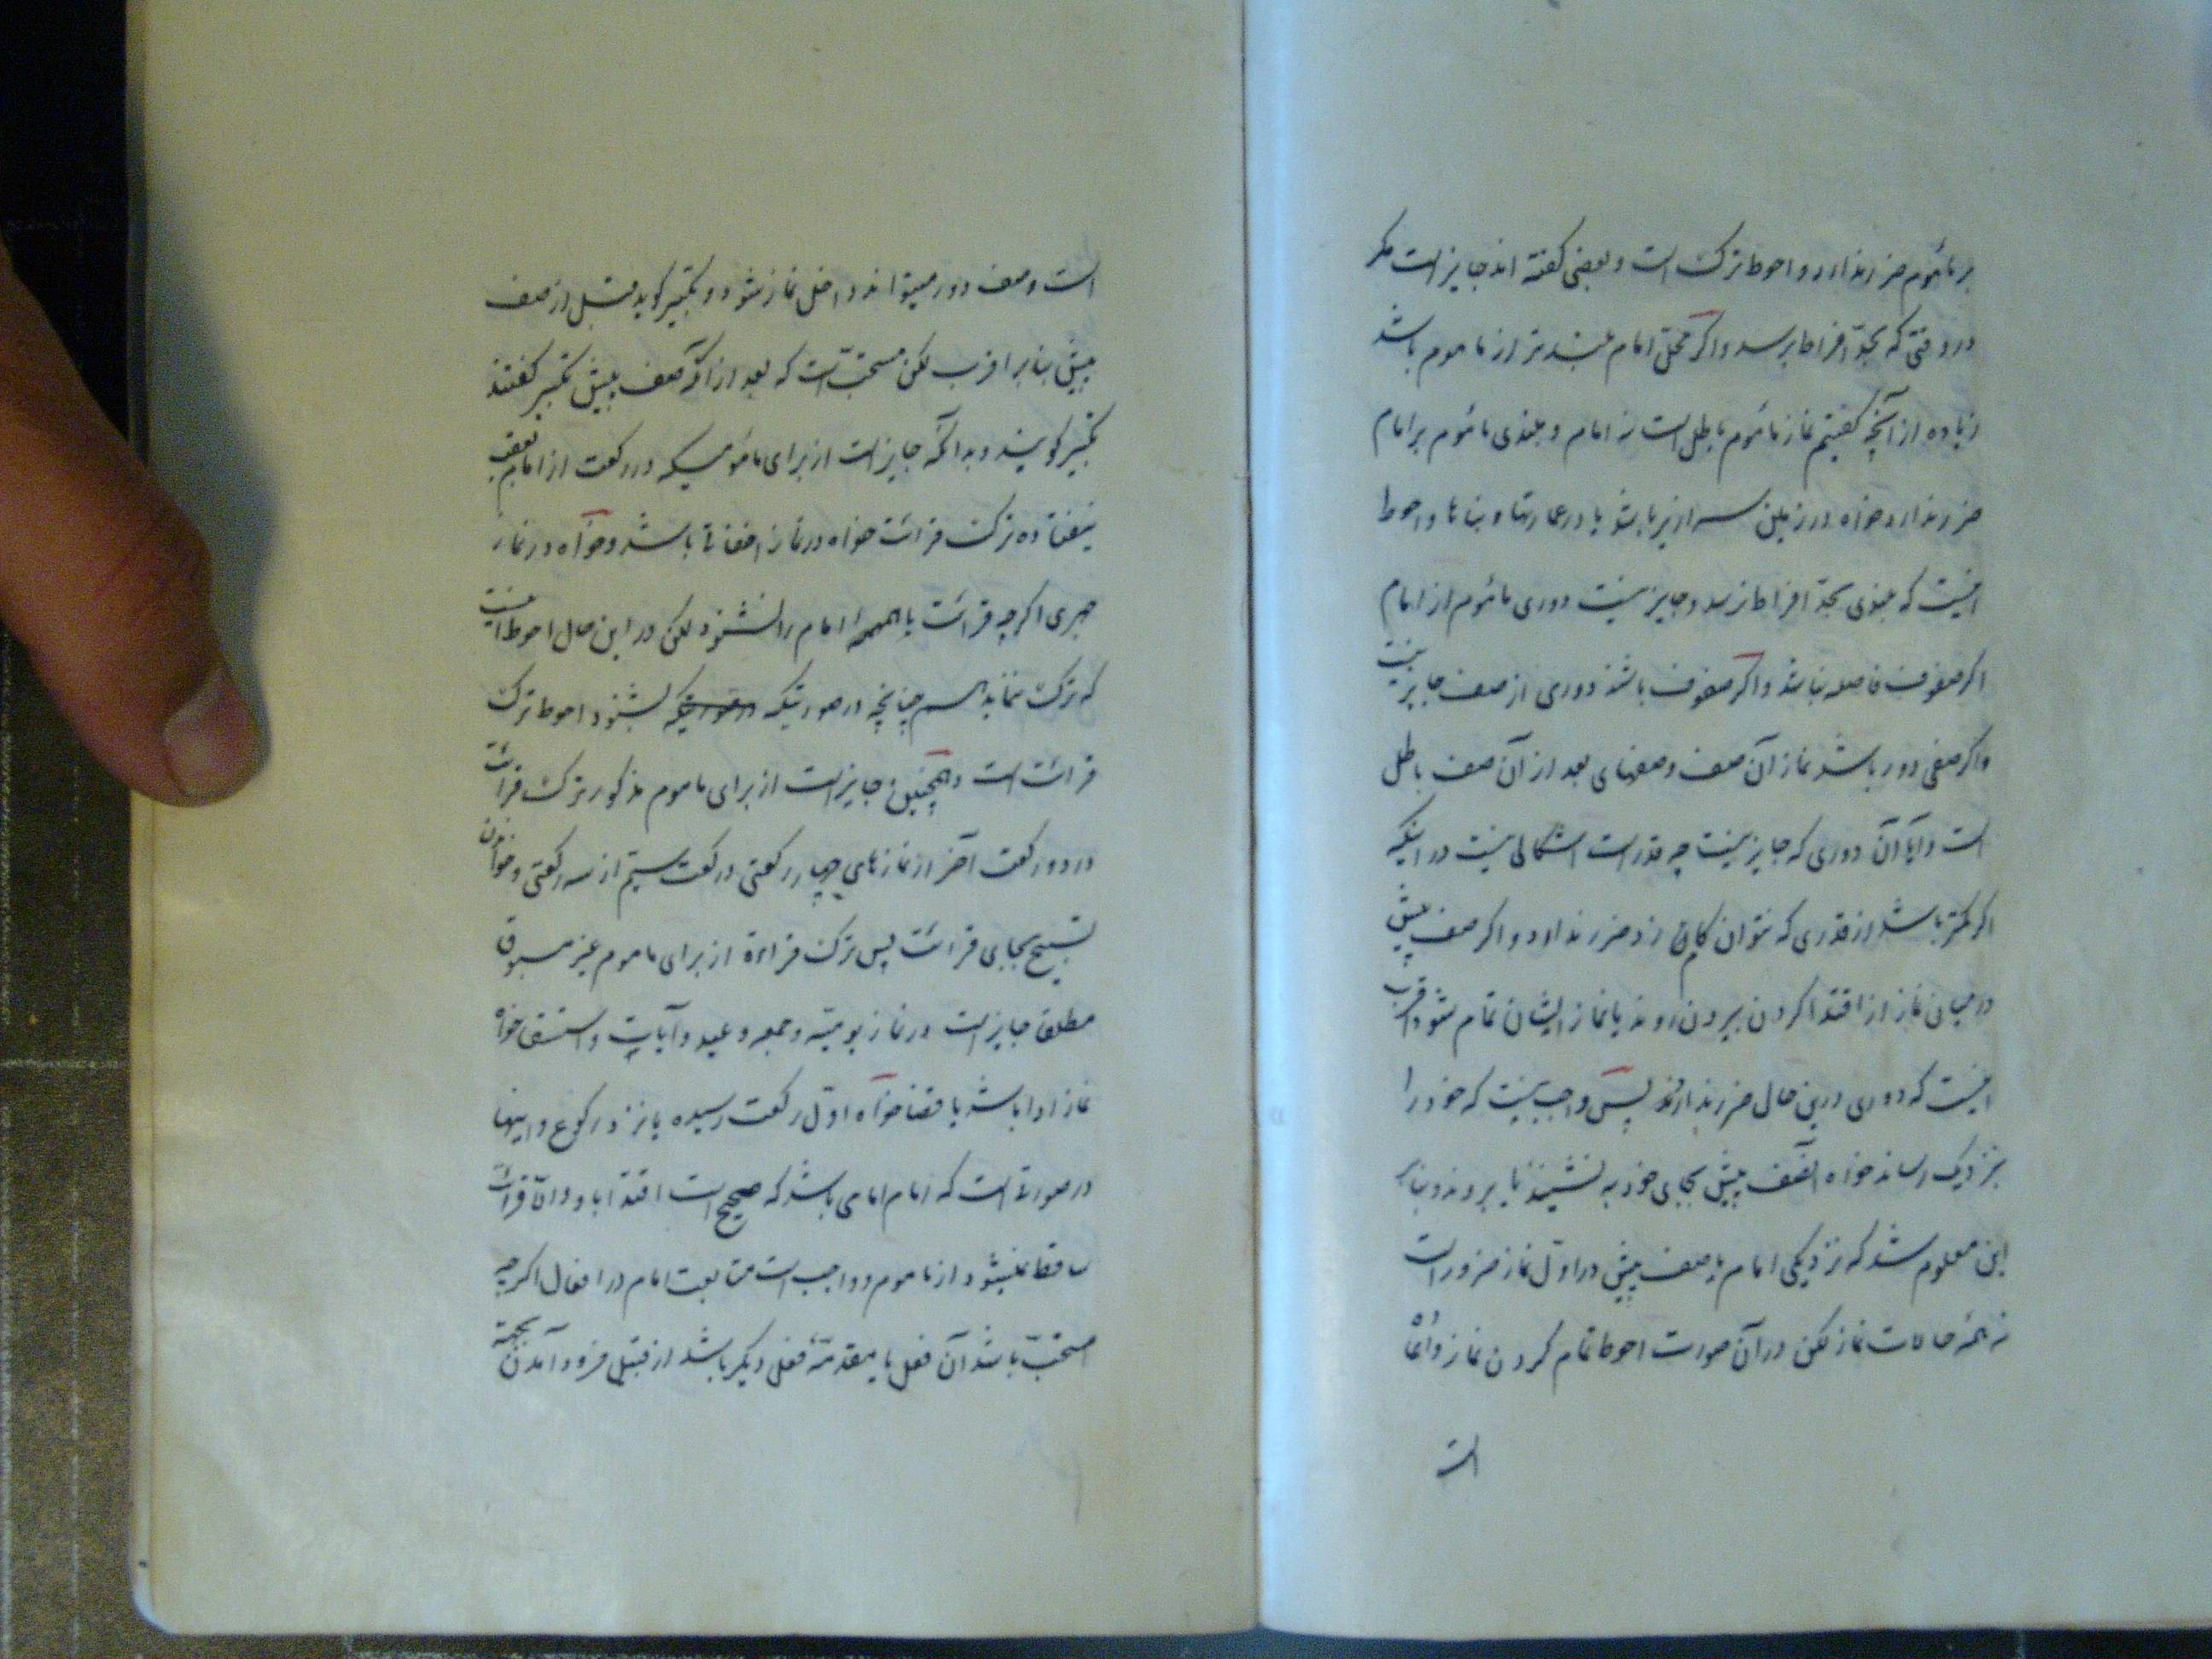 بر مأموم ضرر ندارد و احوط ترک است و بعضی گفته اند جایز است مگر
در وقتی که بحدّ افراط برسد و اگر محلّ امام بلندتر از ماموم باشد
زیاده از آنچه گفتیم نماز مأموم باطل است نه امام و بلندی مأموم بر امام
ضرر ندارد خواه در زمین سرازیر باشد یا در عمارتها و بناها و احوط
اینست که بلندی بحدّ افراط نرسد و جایز نیست دوری مأموم از امام
اگر صفوف فاصله نباشد و اگر صفوف باشد دوری از صف جایز نیست
و اگر صفی دور باشد نماز آن صف و صفهای بعد از آن صف باطل
است و آیا آن دوری که جایز نیست چه قدر است اشکالی نیست در اینکه
اگر کمتر باشد از قدری که بتوان گام زد ضرر ندارد و اگر صف پیش
در میان نماز از اقتدا کردن بیرون روند یا نماز ایشان تمام شود اقرب
اینست که دوری درین حال ضرر ندارد پس واجب نیست که خود را
نزدیک رساند خواه آنصف پیش بجای خود بنشینند یا بروند و بنابر
این معلوم شد که نزدیکی امام یا صف پیش در اوّل نماز ضرور است
نه همهٔ حالات نماز لکن در آن صورت احوط تمام کردن نماز و
است
است و صف دور میتواند داخل نماز شود و تکبیر گوید قبل از صف
پیش بنابر اقرب لکن مستحبّ است که بعد از آنکه صف پیش تکبیر گفتند
تکبیر گویند و بدانکه جایز است از برای مأمومیکه دو رکعت از امام بعقب
نیفتاده ترک قرائت خواه در نماز اخفاتی باشد و خواه در نماز
جهری اگرچه قرائت یا همهمه امام را نشنود لکن در این حال احوط اینست
که ترک ننماید چنانچه در صورتیکه بشنود احوط ترک
قرائت است و همچنین جایز است از برای ماموم مذکور ترک قرائت
در دو رکعت آخر از نمازهای چهار رکعتی و رکعت سیّم از سه رکعتی و خواندن
تسبیح بجای قرائت پس ترک قراءة از برای ماموم غیر مسبوق
مطلقا جایز است در نماز یومیّه و جمعه و عید و آیات و استسقا خواه
نماز ادا باشد یا قضا خواه اوّل رکعت رسیده یا نزد رکوع و اینها
در صورتی است که امام امامی باشد که صحیح است اقتدا باو و الّا قرائت
ساقط نمیشود از ماموم و واجب است متابعت امام در افعال اگرچه
مستحبّ باشد آن فعل یا مقدّمهٔ فعل دیگر باشد از قبیل فرود آمدن بجهة